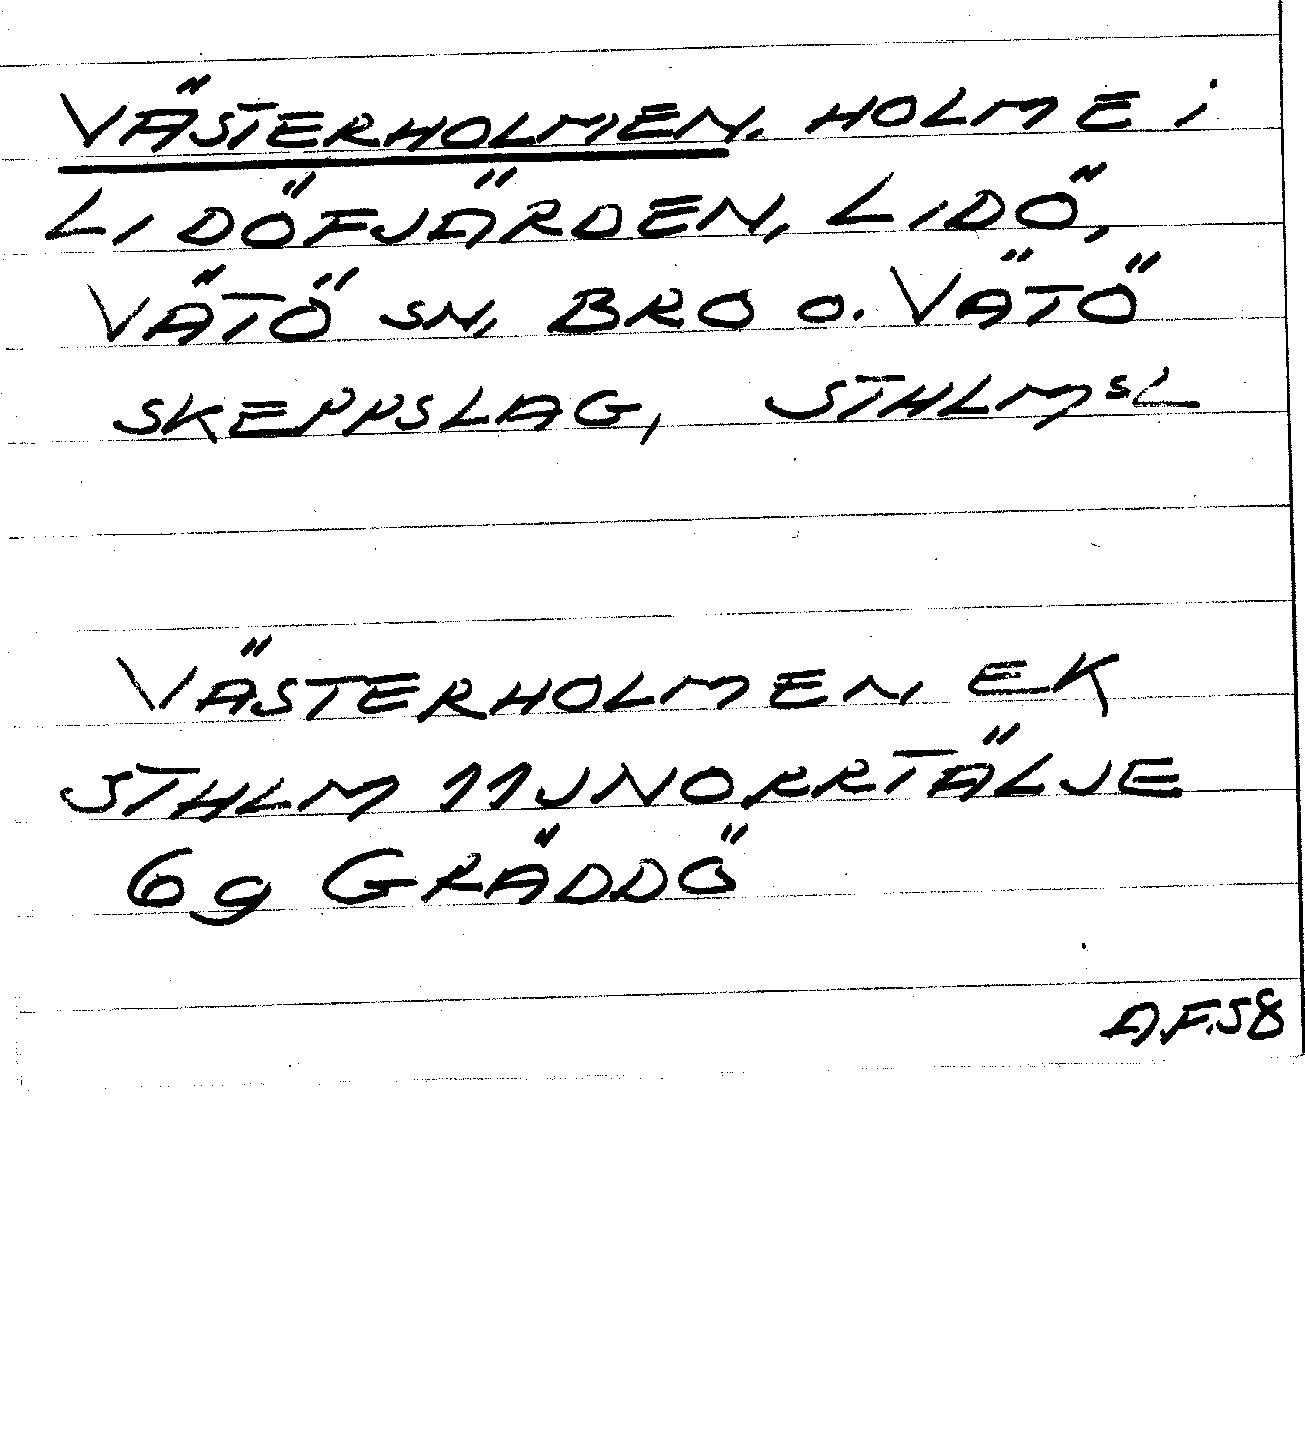 VÄSTERHOLMEN. HOLME i
LIDÖFJÄRDEN, LIDÖ,
VÄTÖ SN, BRO O. VÄTÖ
SKEPPSLAG, STHLMSL
VÄSTERHOLMEN, EK
STHLM 11JNORRTÄLJE
6g GRÄDDÖ
A.F.58